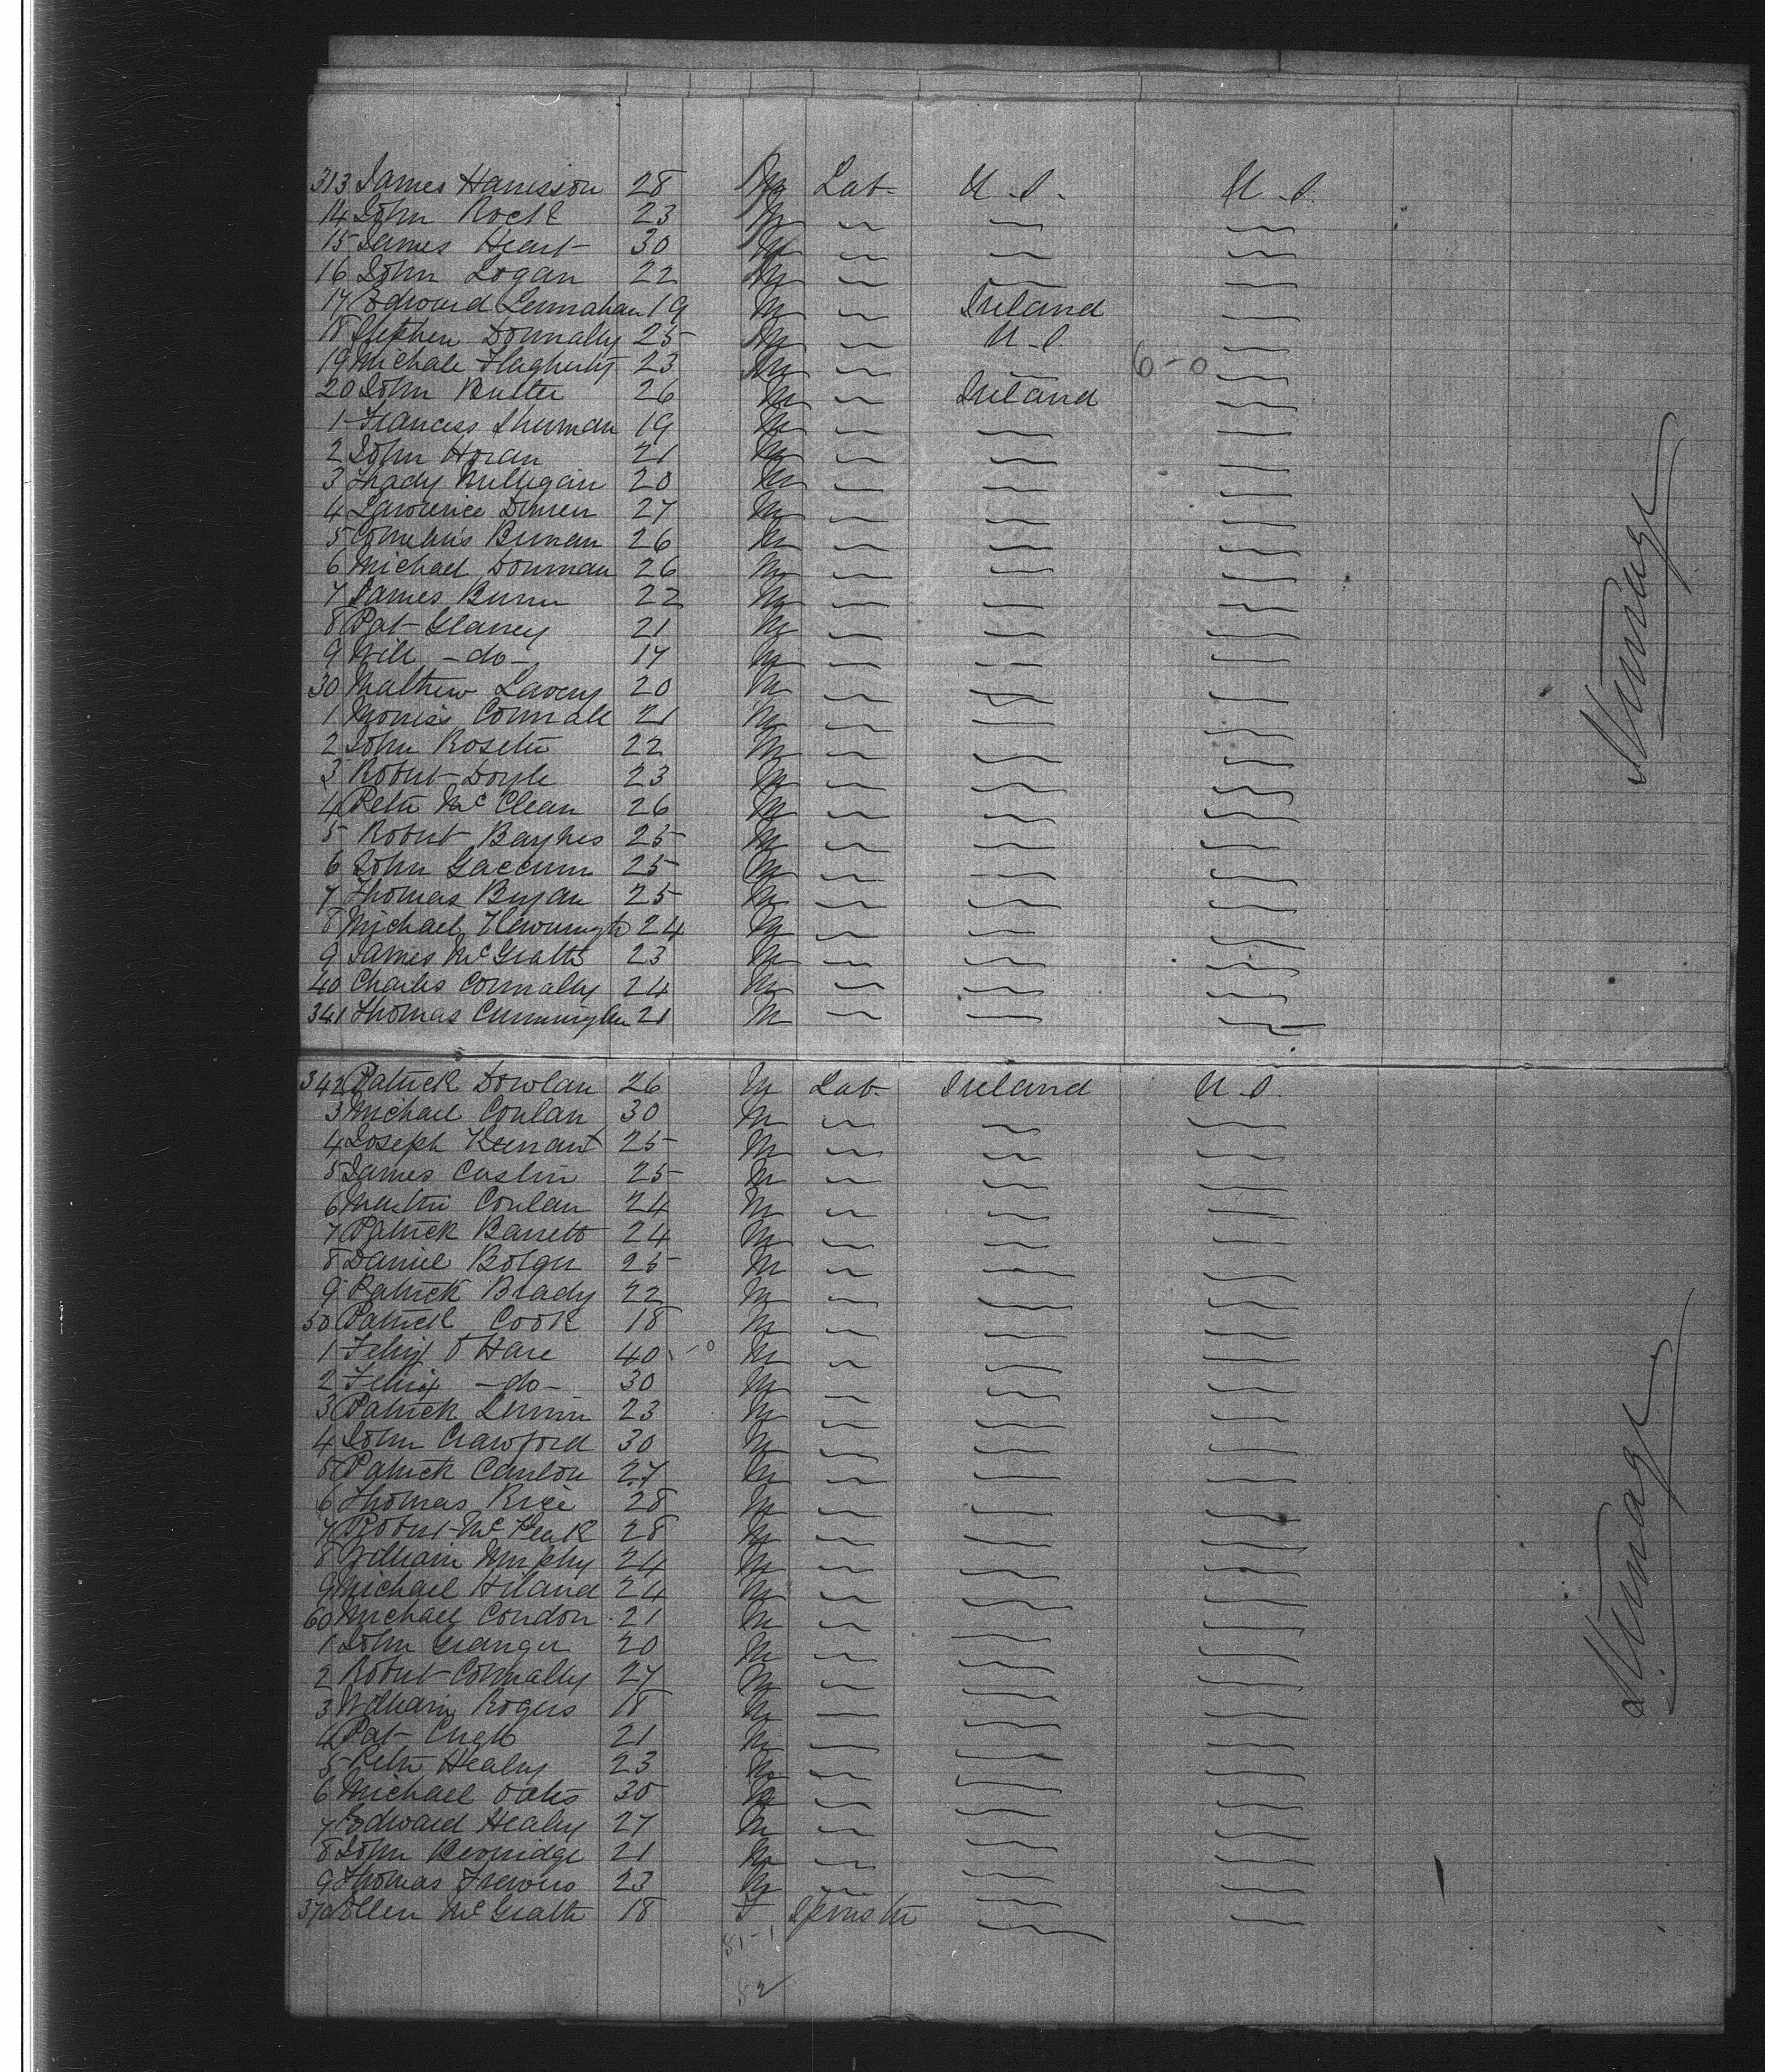 313 James Harrisson 28 M Lab. U.S. U.S.
14 John Rock 23 M
15 James Heart 30 M
16 John Logan 22 M
17 Edward Lennahan 19 M Ireland
18 Stephen Donnally 25 M U.S.
19 Michale Flagherty 23 M 6-0
20 John Butler 26 M Ireland
1 Francess Shurman 19 M
2 John Horan 21 M
3 Thady Mulligan 20 M
4 Lawrence 27 M
5 Cornelius 26 M
6 Michael 26 M
7 James 22 M
8 Pat Glaney 21 M
9 Will -do- 17 M
30 Mathew Lavery 20 M
1 Morris Connall 21 M
2 John 22 M
3 Robert Doyle 23 M
4 Peter McClean 26 M
5 Robert 25 M
6 John 25 M
7 Thomas Bryan 25 M
8 Michael 24 M
9 James McGrath 23 M
40 Charles Connally 24 M
341 Thomas 21 M
Steerage
342 Patrick Dowlan 26 M Lab. Ireland U.S.
3 Michael Conlan 30 M
4 Joseph 25 M
5 James Caslin 25 M
6 Martin Conlan 24 M
7 Patrick Barrett 24 M
8 Daniel Bolger 25 M
9 Patrick Brady 22 M
50 Patrick Cook 18 M
1 Felix O'Hare 40 M
2 Felix -do- 30 M
3 Patrick 23 M
4 John Crawford 30 M
5 Patrick Canlon 27 M
6 Thomas Rice 28 M
7 Robert McPeak 28 M
8 William Murphy 24 M
9 Michael Hiland 24 M
60 Michael Condon 21 M
1 John Granger 20 M
2 Robert Connally 27 M
3 William Rogers 18 M
4 Pat 21 M
5 Peter Healey 23 M
6 Michael Oates 30 M
7 Edward Healey 27 M
8 John Beveridge 21 M
9 Thomas 23 M
370 Ellen McGrath 18 F Spinster
81-1
82
Steerage